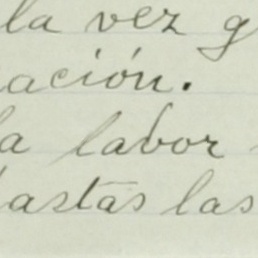 la vez g
ación.
a labor
astas las